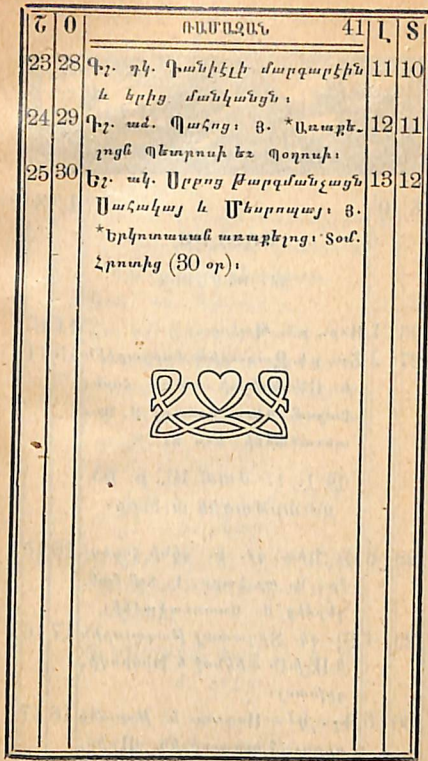 Շ Օ ՌԱՄԱԶԱՆ 41 Լ Տ
23 28 Գշ. դկ. Դանիէլի մարգարէին 11 10
և երից մանկանցն։
24 29 Դշ. ած. Պահոց։ Յ. *Առաքե֊ 12 11
լոցն Պետրոսի եւ Պօղոսի։
25 30 Եշ. ակ. Սրբոց թարգմանչացն 13 12
Սահակայ և Մեսրոպայ։ Յ.
*Երկոտասան առաքելոց։ Տօմ.
Հրոտից (30 օր)։